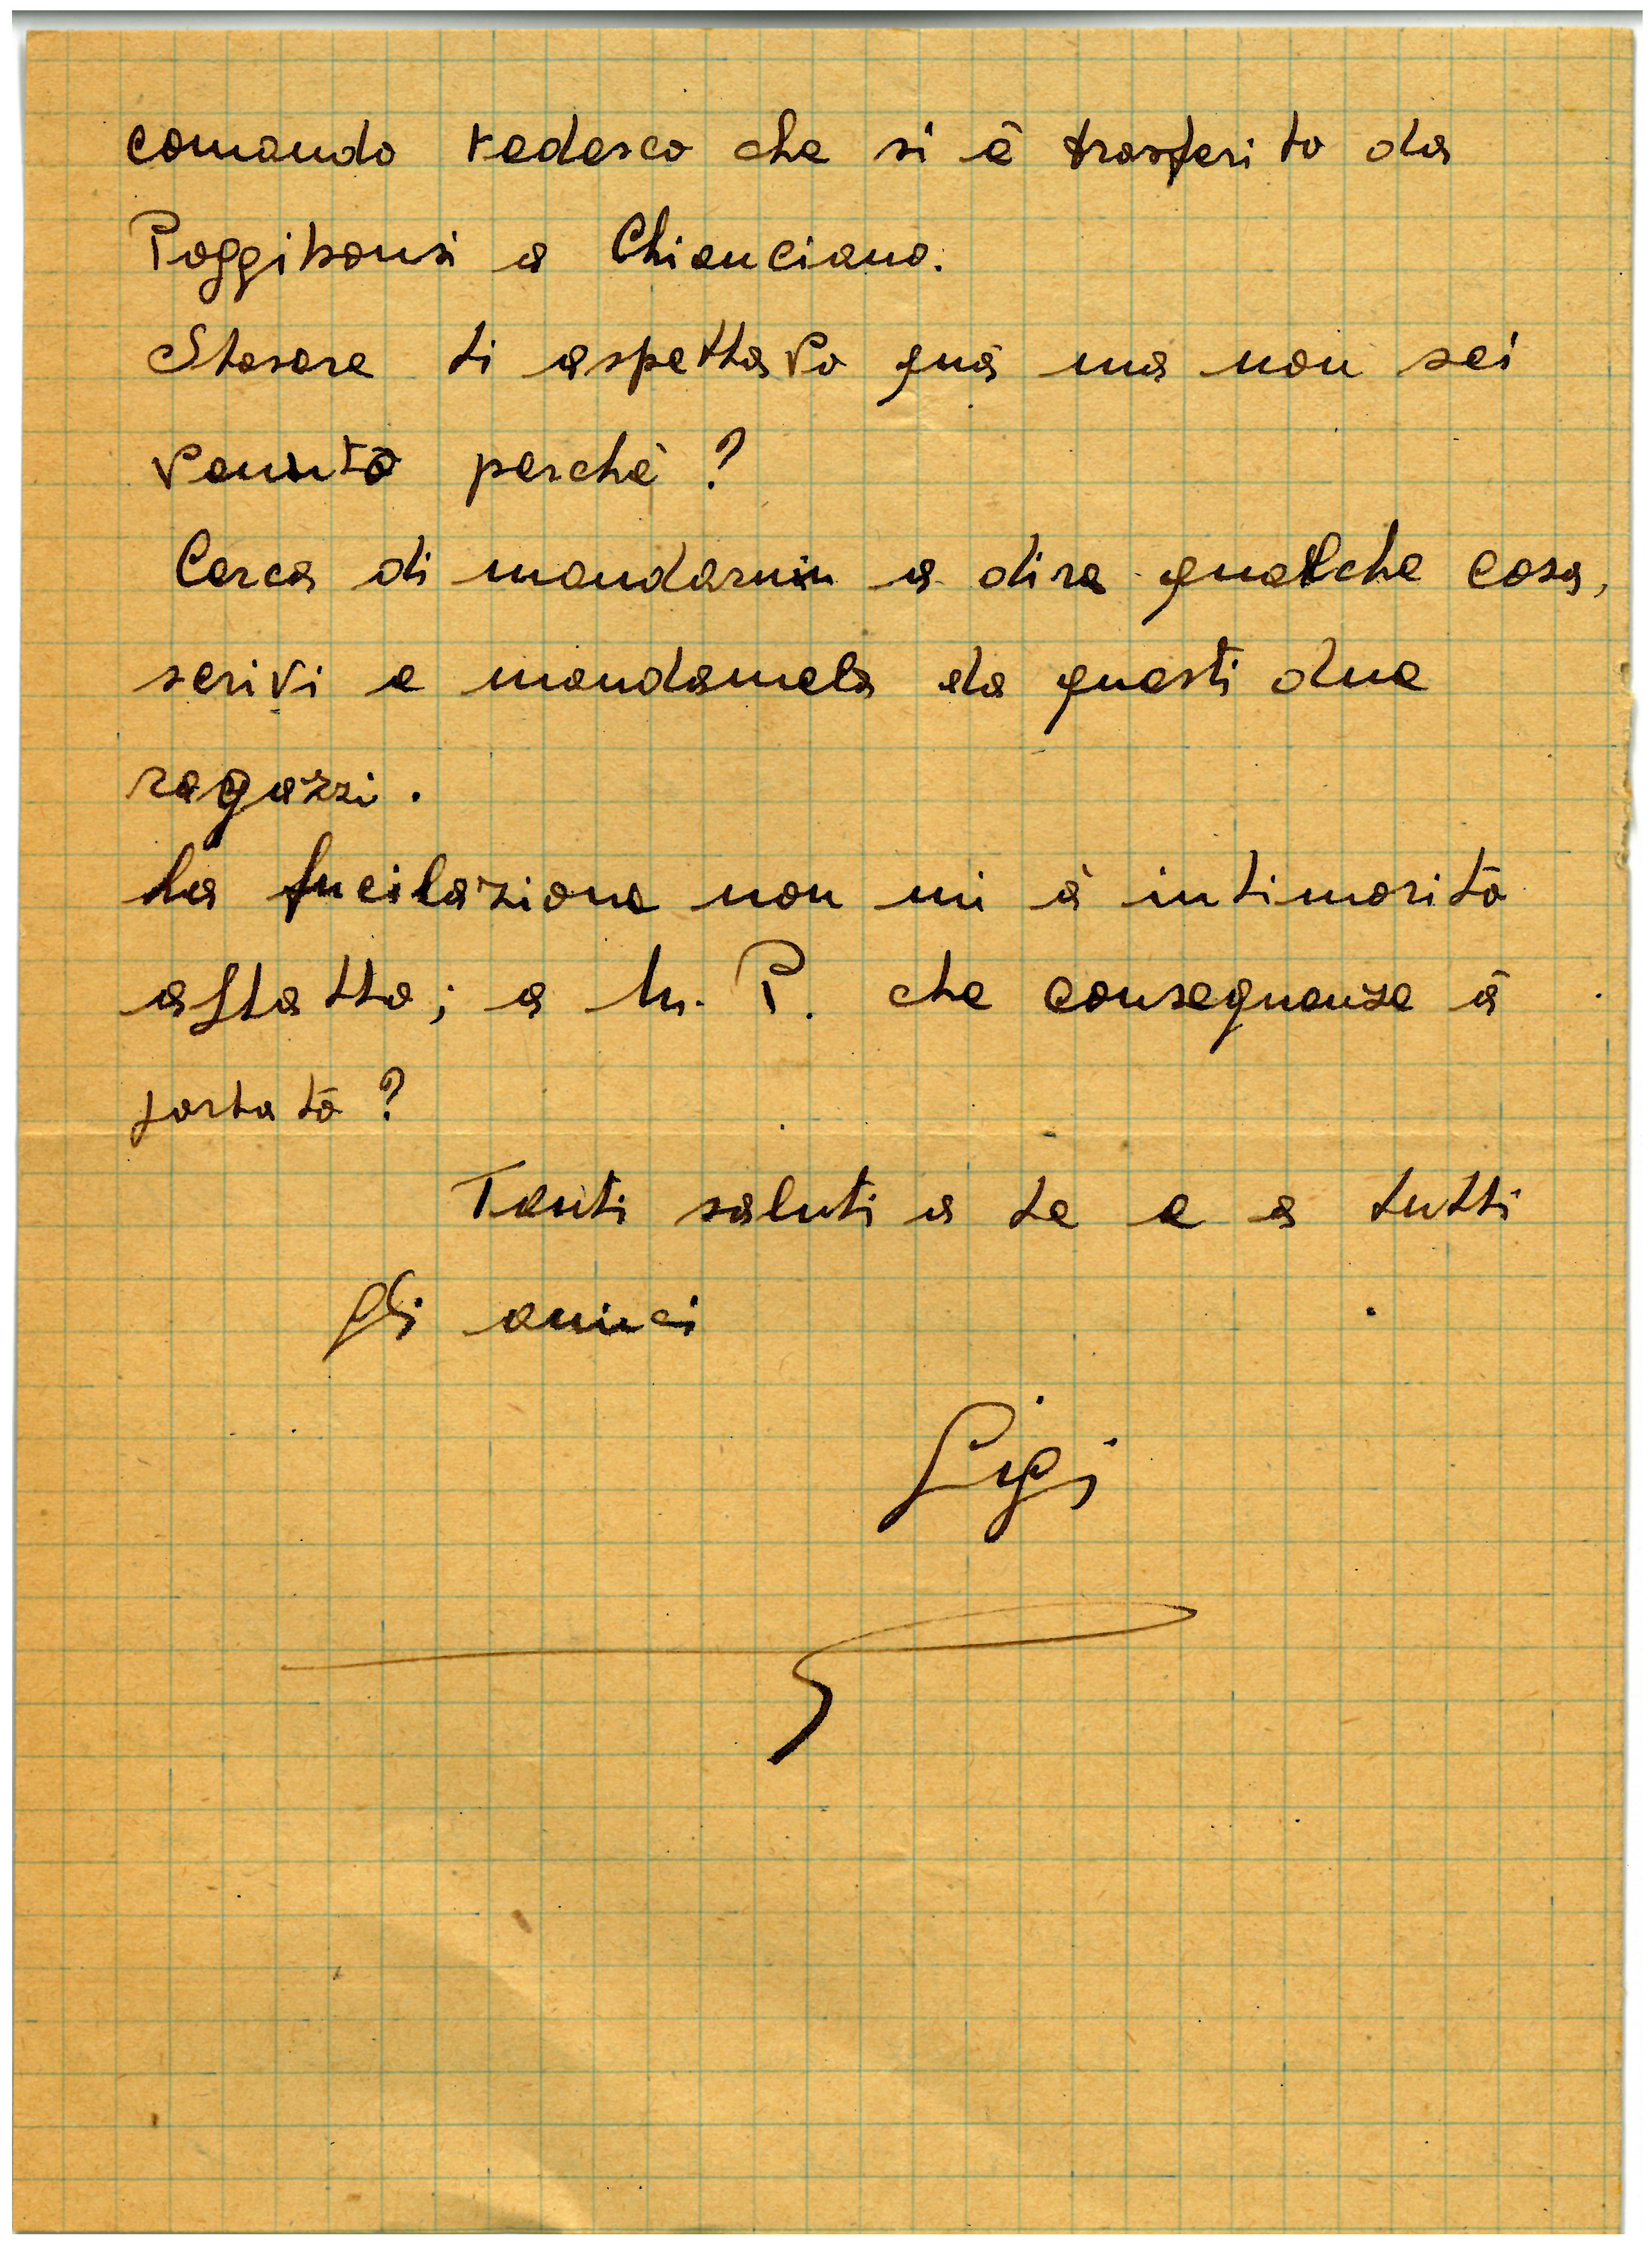 comando tedesco che si è trasferito da
Poggibonsi a Chianciano.
Stasera ti aspettavo quà ma non sei
venuto perchè ?
Cerca di mandarmi a dire qualche cosa,
scrivi e mandamela da questi due
ragazzi.
La fucilazione non mi à intimorito
affatto; a M. P. che conseguenze à
portato ?
Tanti saluti a te e a tutti
gli amici
Gigi